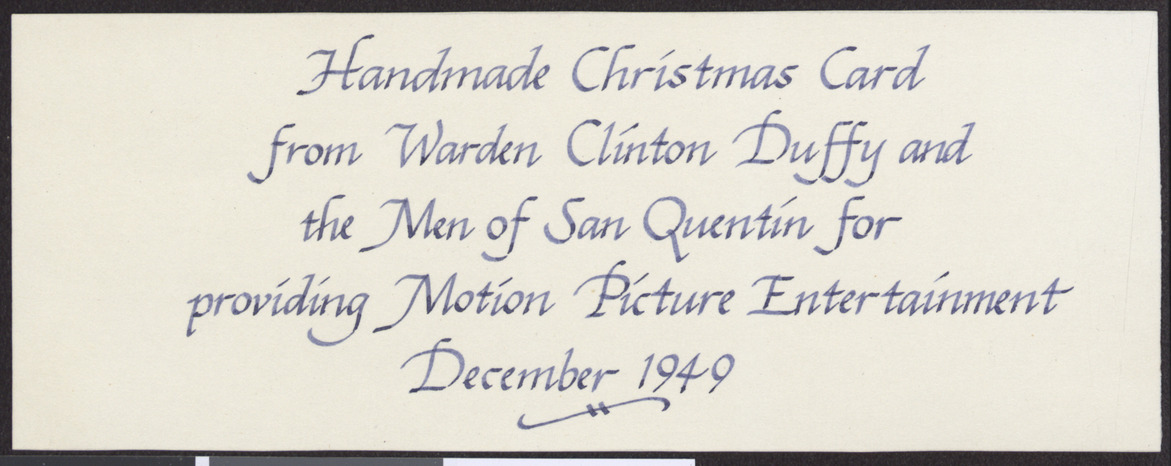 Handmade Christmas Card
from Warden Clinton Duffy and
the Men of San Quentin for
providing Motion Picture Entertainment
December 1949